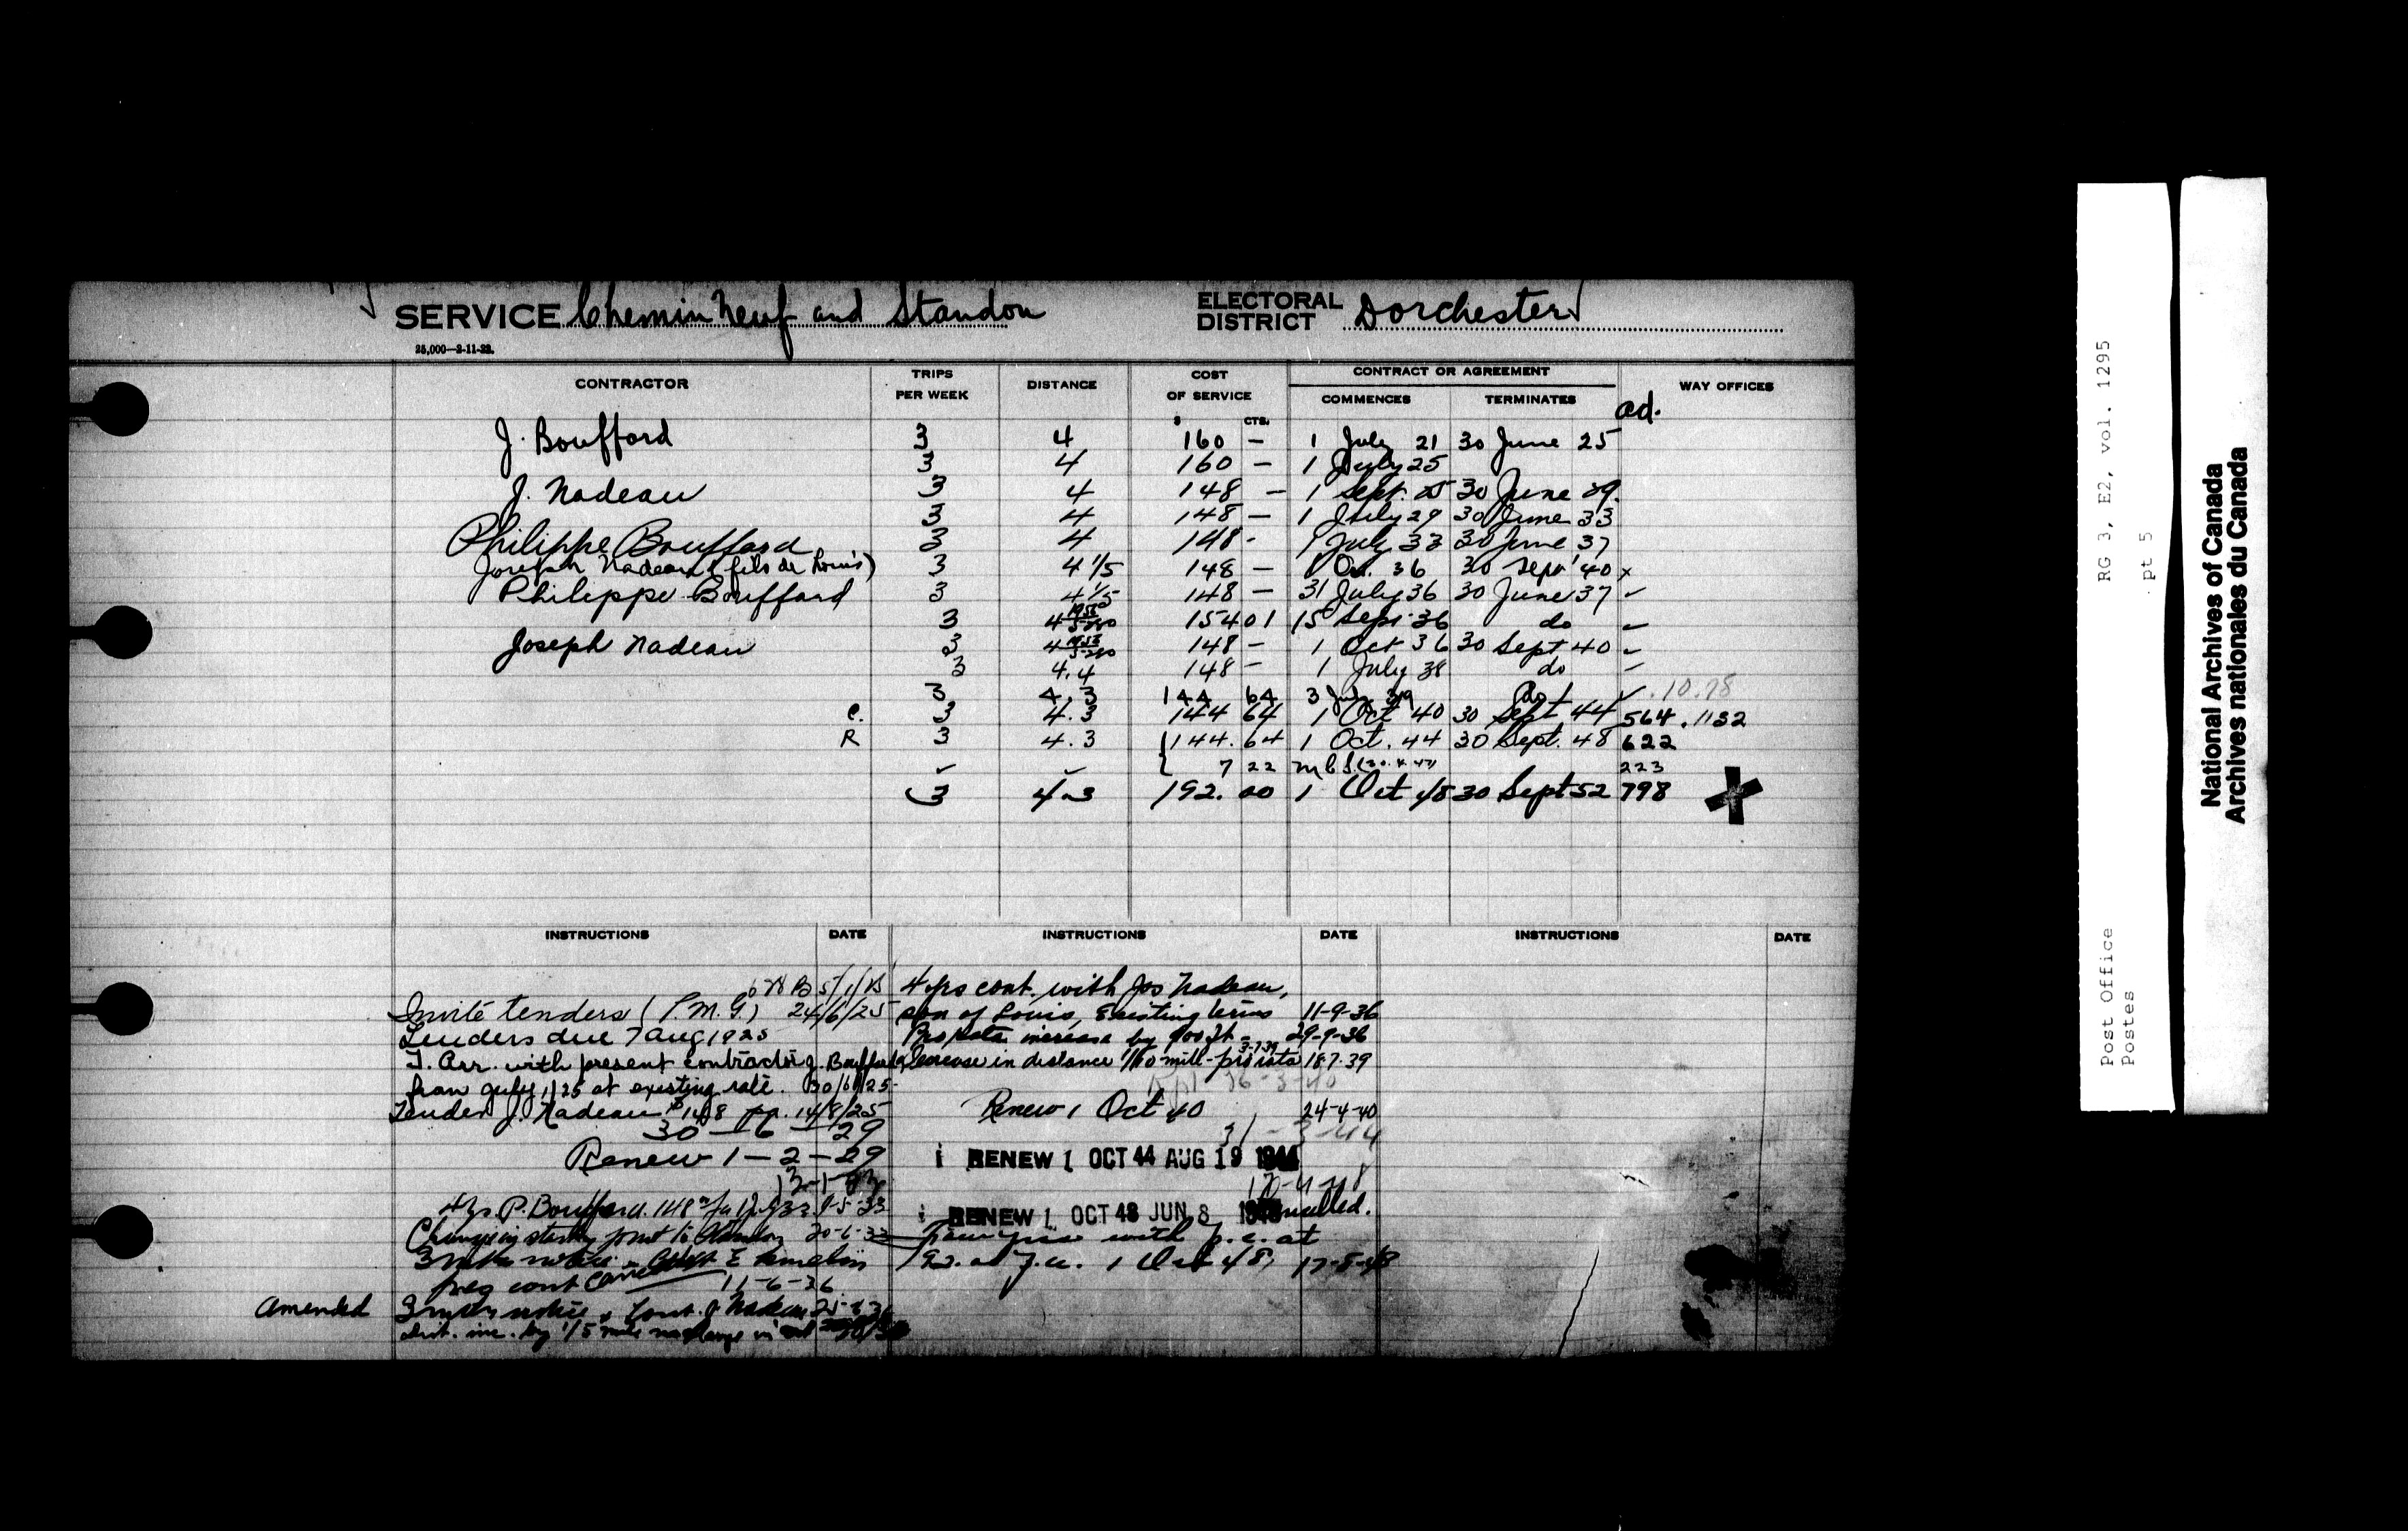 SERVICE Chemin Neuf and Standon ELECTORAL DISTRICT Dorchester
25,000—2-11-22.
CONTRACTOR TRIPS PER WEEK DISTANCE COST OF SERVICE CONTRACT OR AGREEMENT COMMENCES TERMINATES WAY OFFICES
$ CTS. ad.
J. Boufford 3 4 160 — 1 July 21 30 June 25
3 4 160 — 1 July 25
J. Nadeau 3 4 148 — 1 Sept. 25 30 June 29.
3 4 148 — 1 July 29 30 June 33
Philippe Bouffard 3 4 148 - 1 July 33 30 June 37
Joseph Nadeau (fils de Louis) 3 4 1/5 148 — 1 Oct. 36 30 Sept 40 x
Philippe Bouffard 3 4 1/5 148 — 31 July 36 30 June 37 ✓
3 4 154 01 15 Sept 36 do ✓
Joseph Nadeau 3 4 148 — 1 Oct 36 30 Sept 40 ✓
3 4.4 148 — 1 July 38 do ✓
3 4.3 144 64 3 July 39 do ✓ .10.78
C. 3 4.3 144 64 1 Oct 40 30 Sept 44 564 .1132
R 3 4.3 144.64 1 Oct. 44 30 Sept. 48 622
7 22 223
3 4.3 192.00 1 Oct 48 30 Sept 52 798
INSTRUCTIONS DATE INSTRUCTIONS DATE INSTRUCTIONS DATE
Invite tenders (P.M.G.) 24/6/25
Tenders due 7 Aug 1925
T. Arr. with present contractor J. Bouffard
from July 1/25 at existing rate. 30/6/25
Tender J. Nadeau 148 pa. 14/8/25
30 — 6 — 29
Renew 1 — 2 — 29
4 yrs. P. Bouffard. 148 9-5-33
Change in starting point to Standon 20-6-33
11-6-36
Amended
dist. inc. by 1/5 mile no change in
4 yrs cont. with Jos Nadeau,
son of Louis, existing terms 11-9-36
Pro rata increase by 29-9-36
3-7-39
Decrease in distance 1/10 mile - pro rata 18.7.39
Renew 1 Oct 40 24-4-40
31-3-44
RENEW 1 OCT 44 AUG 19 1944
RENEW 1 OCT 48 JUN 8 Cancelled.
Four yrs with p.c. at
192. 1 Oct 48, 17-8-48
RG 3, E2, vol. 1295
pt 5
Post Office
Postes
National Archives of Canada
Archives nationales du Canada